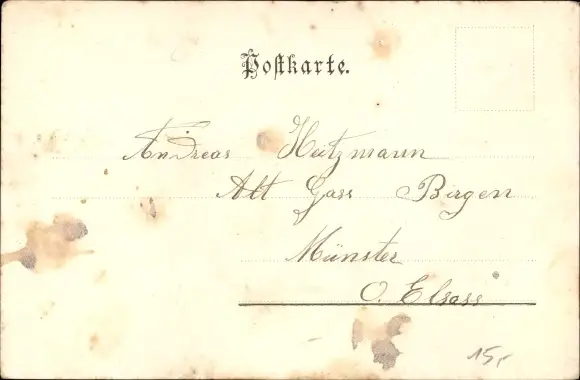 Postkarte.
Andreas Heitzmann
Alt Gass Birgen
Münster
O. Elsass
15,-